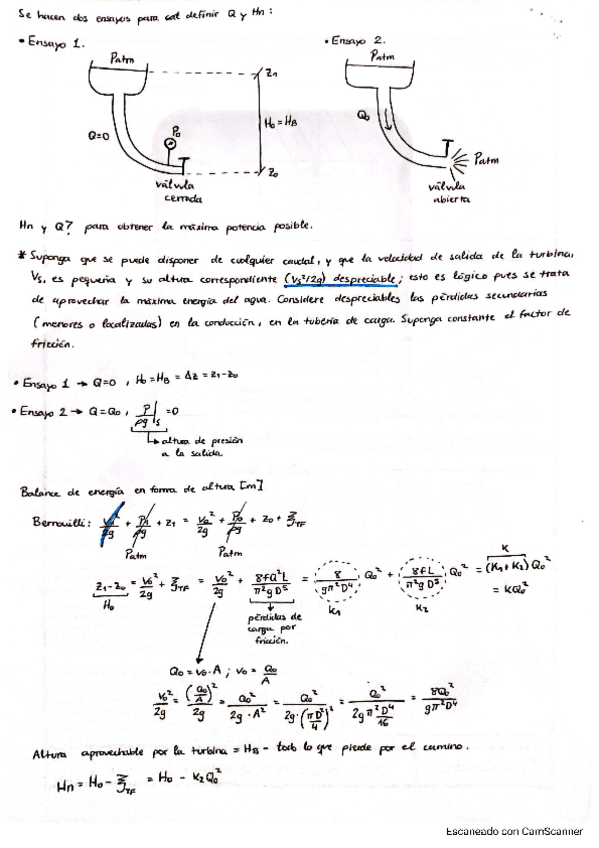 Se hacen dos ensayos para definir Q y Hn:
• Ensayo 1.
• Ensayo 2.
Patm
Patm
Z1
Q=0
P0
H0 = HB
Q0
Patm
Z0
válvula cerrada
válvula abierta
Hn y Q? para obtener la máxima potencia posible.
* Suponga que se puede disponer de cualquier caudal, y que la velocidad de salida de la turbina,
Vs, es pequeña y su altura correspondiente (Vs²/2g) despreciable; esto es lógico pues se trata
de aprovechar la máxima energía del agua. Considere despreciables las pérdidas secundarias
(menores o localizadas) en la conducción, en la tubería de carga. Suponga constante el factor de
fricción.
• Ensayo 1 → Q=0, H0 = HB = Δz = z1-z0
• Ensayo 2 → Q=Q0, P/ρg|s = 0
altura de presión
a la salida
Balance de energía en forma de altura [m]
Bernouilli: V1²/2g + P1/ρg + z1 = V0²/2g + P0/ρg + z0 + ξTF
Patm
Patm
z1-z0 = V0²/2g + ξTF = V0²/2g + 8fQ²L/π²gD⁵ = 8/gπ²D⁴ Q0² + 8fL/π²gD⁵ Q0² = (K1+K2)Q0²
K
= KQ0²
H0
K1
K2
pérdidas de
carga por
fricción.
Q0 = V0·A ; V0 = Q0/A
V0²/2g = (Q0/A)²/2g = Q0²/2g·A² = Q0²/2g·(πD²/4)² = Q0²/2gπ²D⁴/16 = 8Q0²/gπ²D⁴
Altura aprovechable por la turbina = HB - todo lo que pierde por el camino.
Hn = H0 - ξTF = H0 - K2Q0²
Escaneado con CamScanner